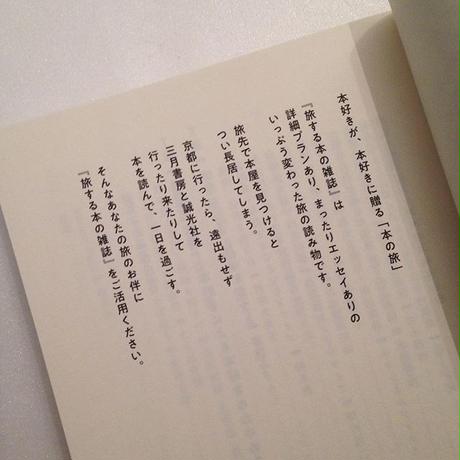 本好きが、本好きに贈る「本の旅」
『旅する本の雑誌』は
詳細プランあり、まったりエッセイありの
いっぷう変わった旅の読み物です。
旅先で本屋を見つけると
つい長居してしまう。
京都に行ったら、遠出もせず
三月書房と誠光社を
行ったり来たりして
本を読んで、一日を過ごす。
そんなあなたの旅のお伴に
『旅する本の雑誌』をご活用ください。